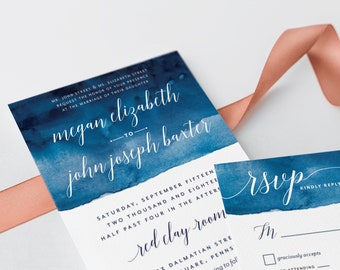 MR. JOHN STREET & MS. ELIZABETH STREET
REQUEST THE HONOR OF YOUR PRESENCE
AT THE MARRIAGE OF THEIR DAUGHTER
megan elizabeth
TO
john joseph baxter
SATURDAY, SEPTEMBER FIFTEEN
TWO THOUSAND AND EIGHTEE
HALF PAST FOUR IN THE AFTERN
red clay room
DALMATIAN STREET
rsvp
KINDLY REPLY
M
graciously accepts
ATTENDING